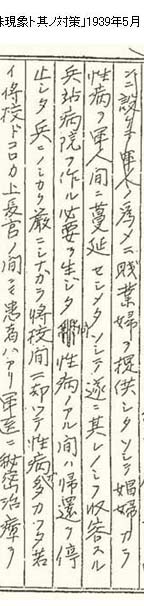 殊現象ト其ノ対策」1939年5月
ニ設ケ軍人ノ為メニ賤業婦ヲ提供シタ ソシテ娼婦カラ
性病ヲ軍人間ニ蔓延セシメタ シテ遂ニ其レノミヲ収容スル
兵站病院ヲ作ル必要ヲ生シタ 性病ノアル間ハ帰還ヲ停
止シタ 兵ニノミカク厳ニシナカラ将校間ニ却ツテ性病多カツタ 若
イ将校ドコロカ上長官ノ間ニモ患者ハアリ軍医ニ秘密治療ヲ